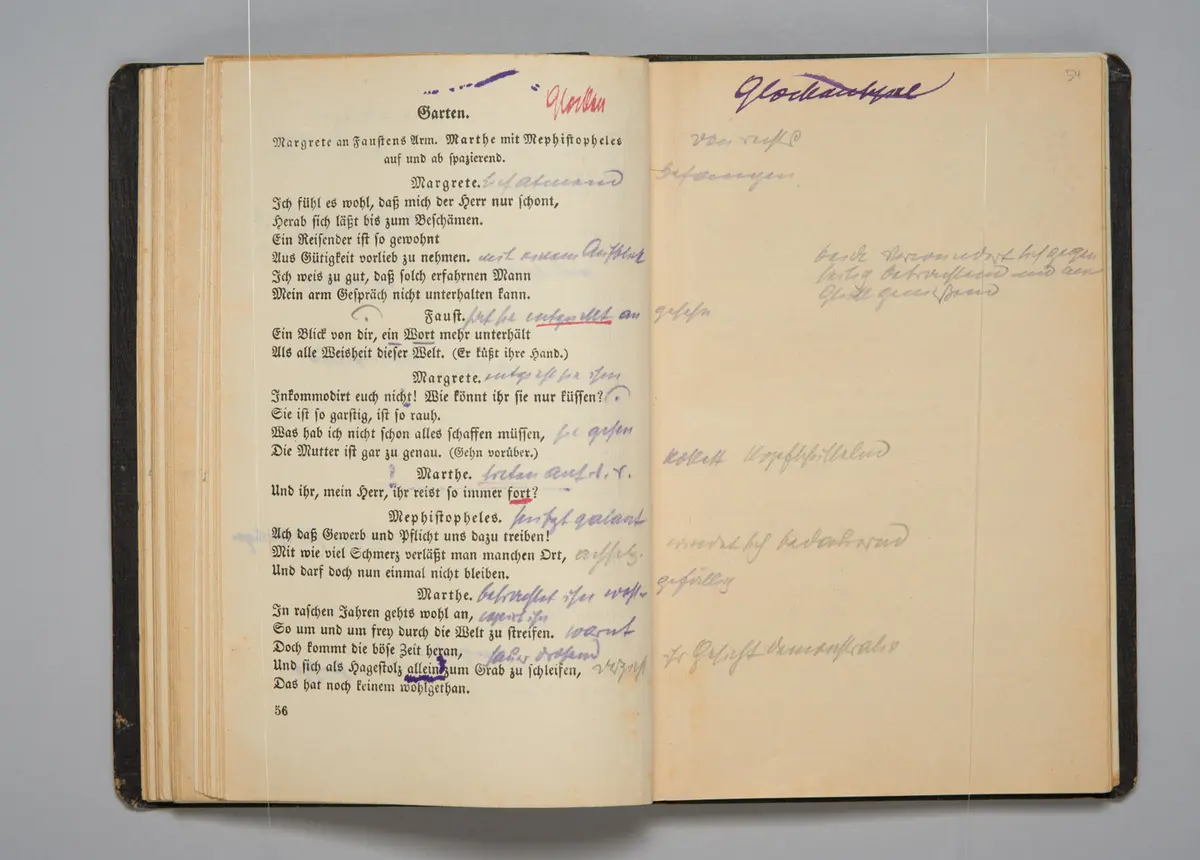 Glocken
Garten.
Margrete an Faustens Arm. Marthe mit Mephistopheles
auf und ab spazierend.
Margrete.
Ich fühl es wohl, daß mich der Herr nur schont,
Herab sich läßt bis zum Beschämen.
Ein Reisender ist so gewohnt
Aus Gütigkeit vorlieb zu nehmen. mit einem Aufblick
Ich weis zu gut, daß solch erfahrnen Mann
Mein arm Gespräch nicht unterhalten kann.
Faust. hat sie entzückt an
Ein Blick von dir, ein Wort mehr unterhält
Als alle Weisheit dieser Welt. (Er küßt ihre Hand.)
Margrete. entzieht sie ihm
Inkommodirt euch nicht! Wie könnt ihr sie nur küssen?
Sie ist so garstig, ist so rauh.
Was hab ich nicht schon alles schaffen müssen, sie gehen
Die Mutter ist gar zu genau. (Gehn vorüber.)
Marthe. treten auf v. r.
Und ihr, mein Herr, ihr reist so immer fort?
Mephistopheles. seufzt galant
Ach daß Gewerb und Pflicht uns dazu treiben!
Mit wie viel Schmerz verläßt man manchen Ort,
Und darf doch nun einmal nicht bleiben.
Marthe. betrachtet ihn
In raschen Jahren gehts wohl an,
So um und um frey durch die Welt zu streifen. warnt
Doch kommt die böse Zeit heran,
Und sich als Hagestolz allein zum Grab zu schleifen,
Das hat noch keinem wohlgethan.
56
54
von rechts
Befangen.
beide verwundert sich gegen
seitig betrachtend und am
Glück genießend
gesehn
kokett Kopfschüttelnd
wendet sich bedauernd
gefällig
ihr Gesicht demonstrativ